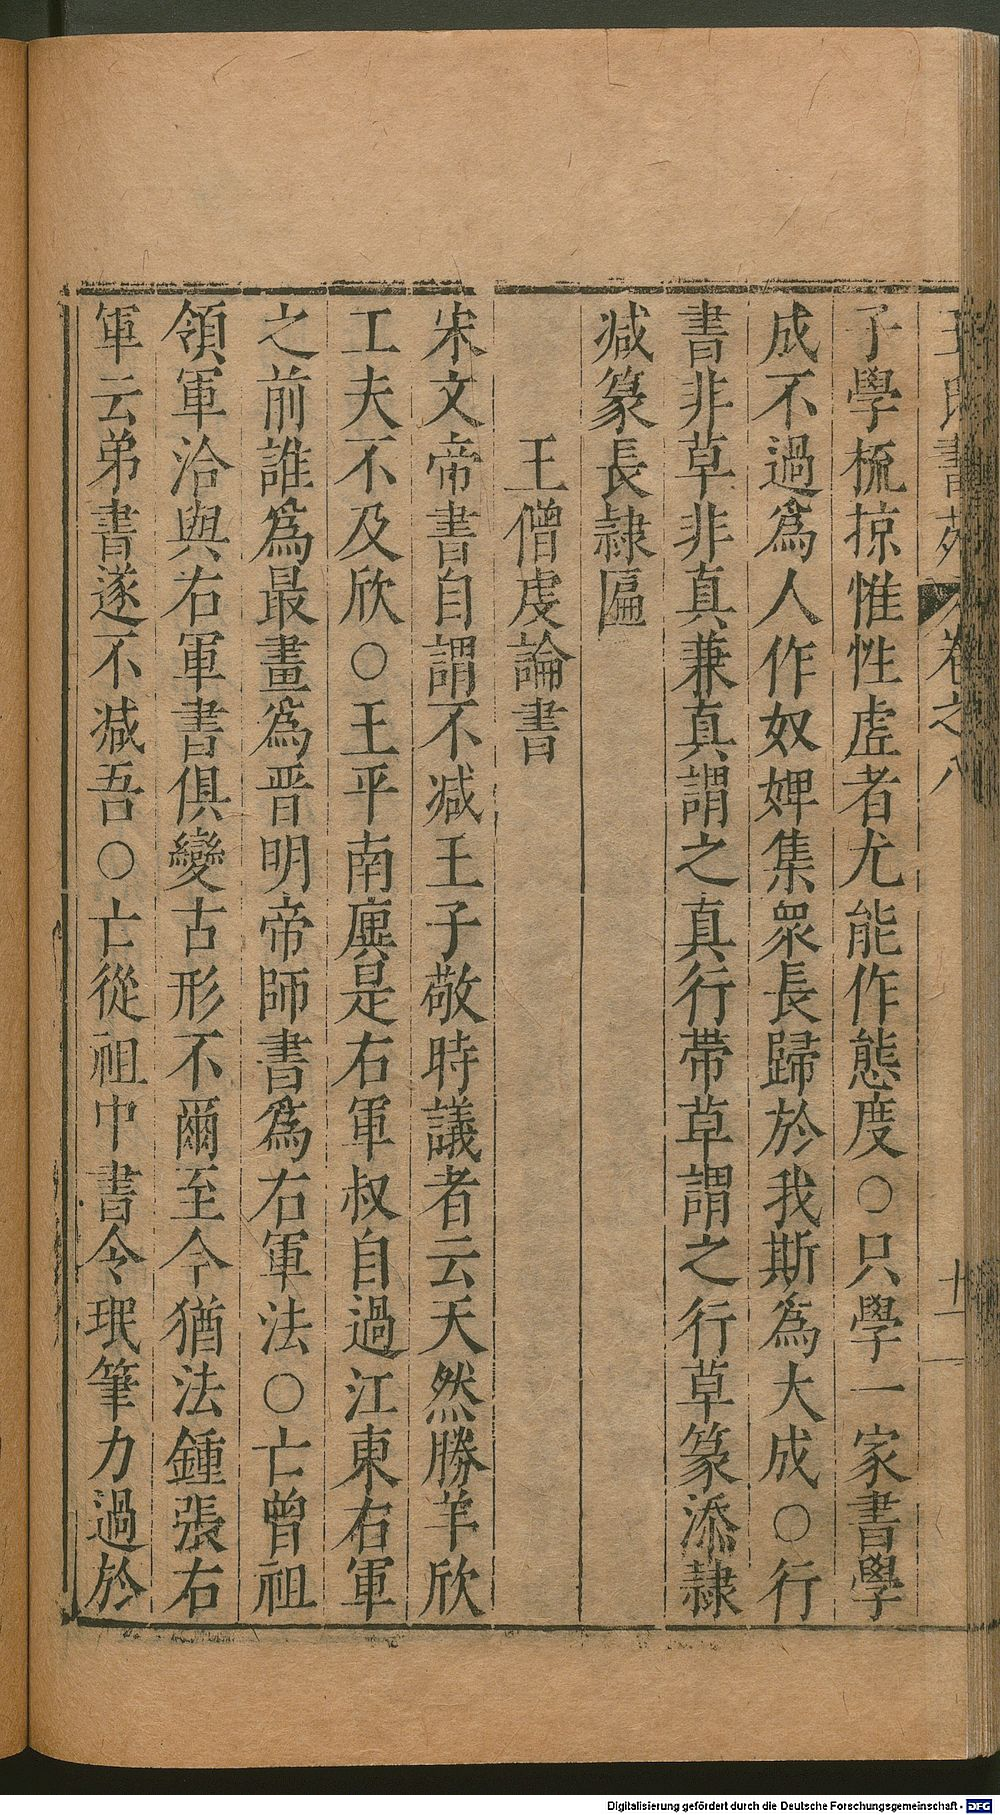 王氏書苑 卷之八 十一
子學梳掠惟性虛者尤能作態度○只學一家書學
成不過爲人作奴婢集衆長歸於我斯爲大成○行
書非草非真兼真謂之真行帶草謂之行草篆添隷
减篆長隷匾
王僧虔論書
宋文帝書自謂不减王子敬時議者云天然勝羊欣
工夫不及欣○王平南廙是右軍叔自過江東右軍
之前誰爲最畫爲晋明帝師書爲右軍法○亡曾祖
領軍洽與右軍書俱變古形不爾至今猶法鍾張右
軍云弟書遂不减吾○亡從祖中書令珉筆力過於
Digitalisierung gefördert durch die Deutsche Forschungsgemeinschaft - DFG